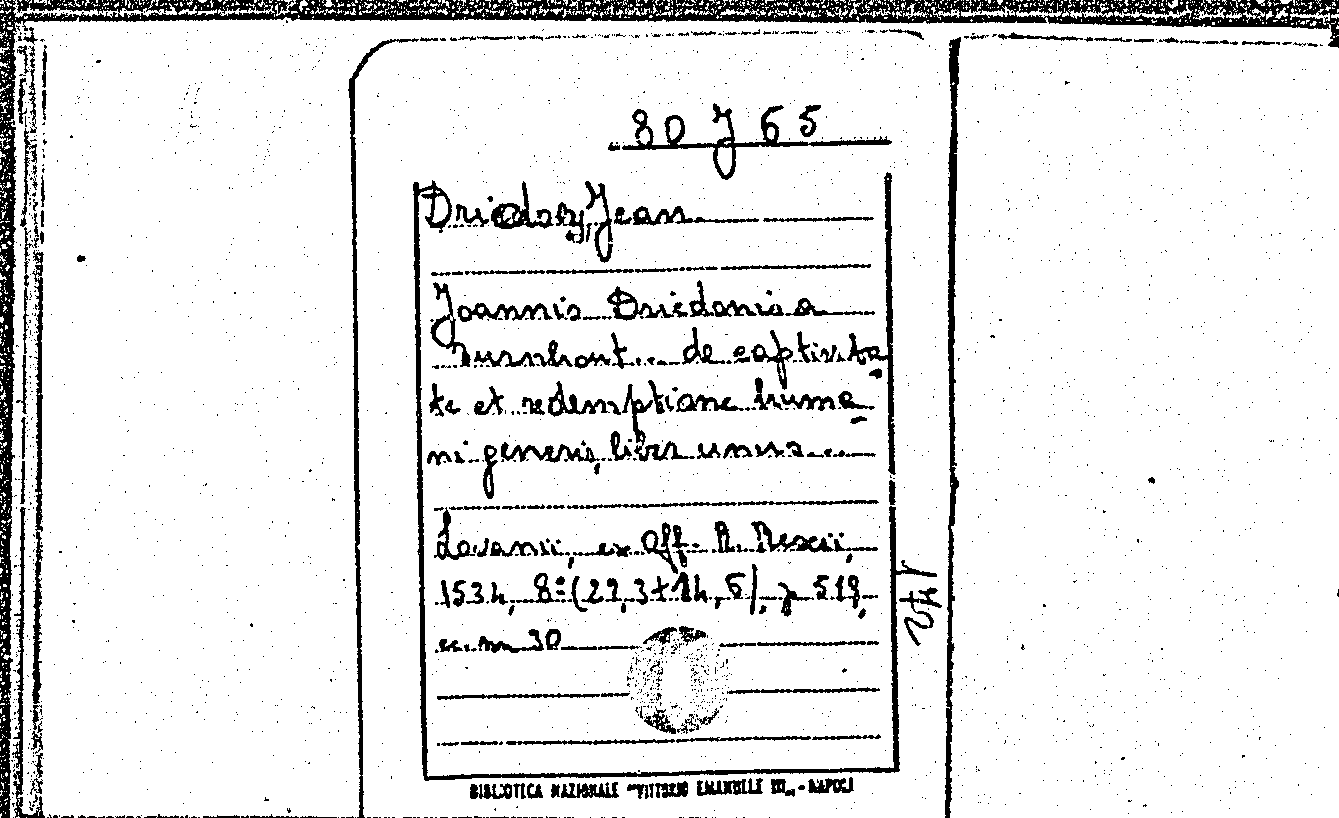 80 J 65
Driedoz, Jean
Joannis Driedonis a
Turnhout... de captivita-
te et redemptione huma-
ni generis, liber unus...
Lovanii, ex Off. R. Rescii,
1534, 8º (22,3+14,6), p 519,
cc. nn 30
BIBLIOTECA NAZIONALE "VITTORIO EMANUELE III" - NAPOLI